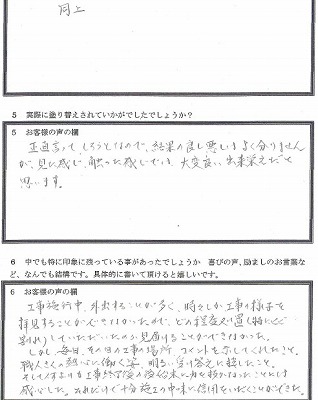 同上
5 実際に塗り替えされていかがでしたでしょうか？
5 お客様の声の欄
正直言って、しろうとなので、結果の良し悪しはよく分りません
が、見た感じ、触った感じでは、大変良い出来栄えだと
思います。
6 中でも特に印象に残っている事があったでしょうか 喜びの声、励ましのお言葉な
ど、なんでも結構です。具体的に書いて頂けると嬉しいです。
6 お客様の声の欄
工事施行中、外出することが多く、時々しか工事の様子を
拝見することができなかったので、どの程度
していただいたのか見届けることができなかった。
しかし、毎日、その日の工事の場所、コメントを示してくれたこと、
職人さんの熱心に働く姿、明るい受け答えに接したこと、
そして何よりも工事終了後の後始末に
感心した。これだけで十分施工の中味に信用をいだくことができた。